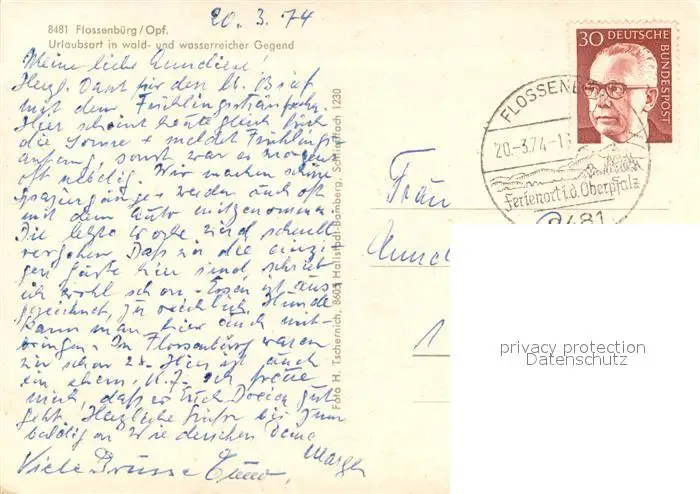 20. 3. 74
8481 Flossenbürg/Opf.
Urlaubsort in wald- und wasserreicher Gegend
Meine liebe
Herzl. Dank für den lb. Brief
mit dem
Hier scheint heute gleich früh
die Sonne + meldet Frühlings-
anfang, sonst war es morgens
oft nebelig. Wir machen schöne
Spaziergänge + werden auch oft
mit dem Auto mitgenommen
Die letzte Woche wird schnell
vergehen. Daß wir die einzi-
gen Gäste hier sind, schrieb
ich wohl schon. Essen ist aus-
gezeichnet, zu reichlich. Hunde
kann man hier auch mit-
bringen. In Flossenbürg waren
wir schon 2x. Hier ist auch
ein ehem. K.Z. Ich freue
mich, daß es Euch Dreien gut
geht. Herzliche Grüße bis zum
wie derseh'n Deine
Viele Grüsse
Foto H. Tschernich, 8605 Hallstadt-Bamberg, Schließfach 1230
30 DEUTSCHE
BUNDESPOST
FLOSSENB
20.-3.74-1
Ferienort i.d. Oberpfalz
8481
Frau
1
privacy protection
Datenschutz